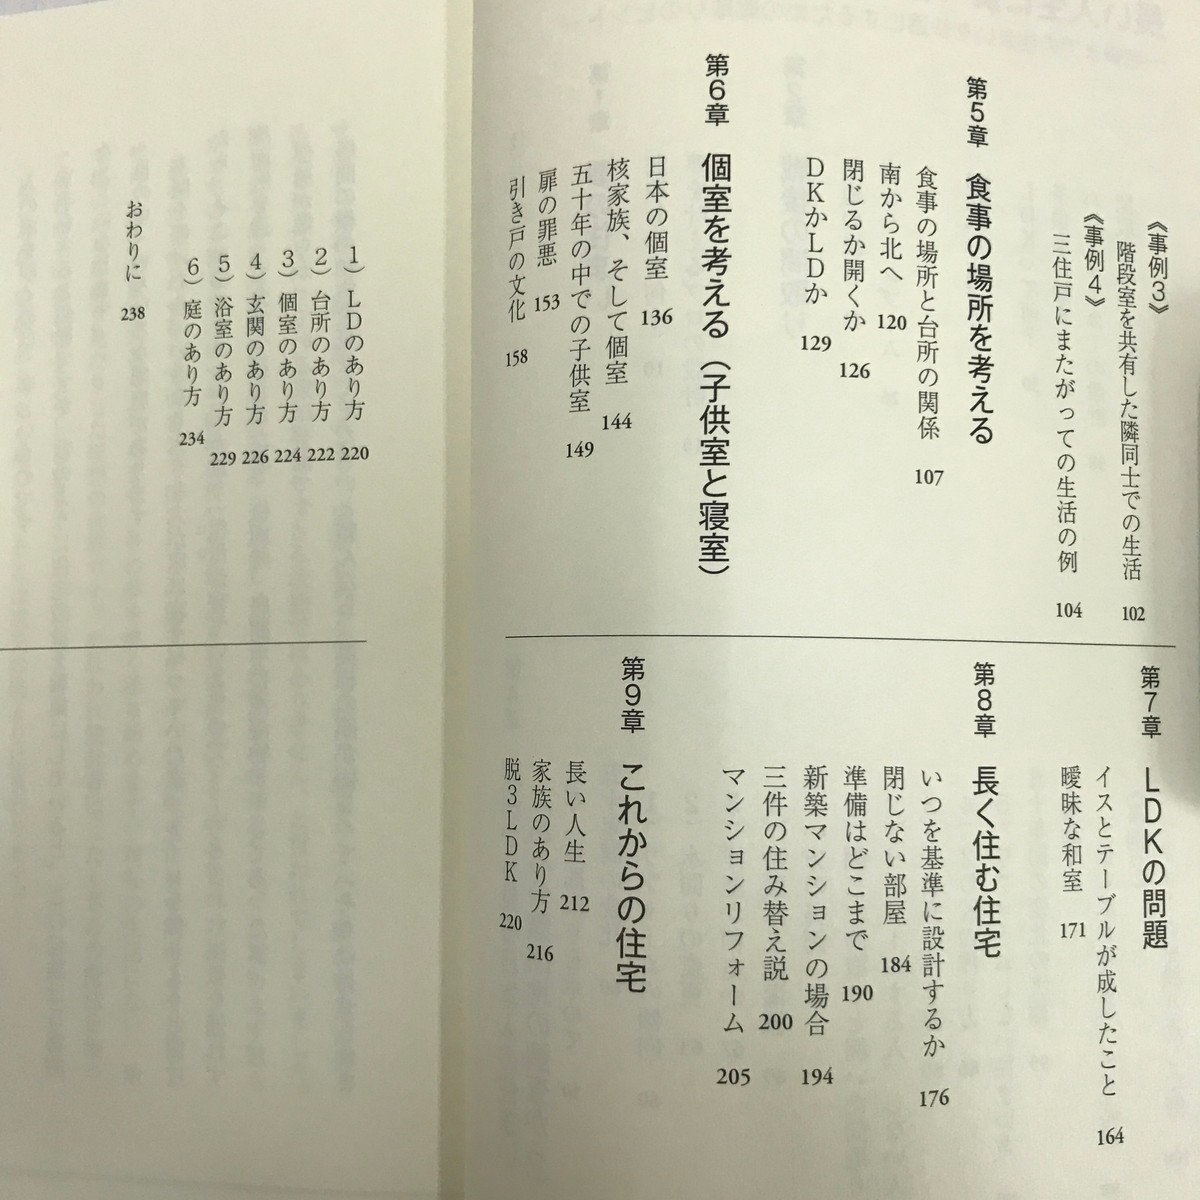 《事例3》
階段室を共有した隣同士での生活 102
《事例4》
三住戸にまたがっての生活の例 104
第5章 食事の場所を考える
食事の場所と台所の関係 107
南から北へ 120
閉じるか開くか 126
DKかLDか 129
第6章 個室を考える（子供室と寝室）
日本の個室 136
核家族、そして個室 144
五十年の中での子供室 149
扉の罪悪 153
引き戸の文化 158
第7章 LDKの問題
イスとテーブルが成したこと 164
曖昧な和室 171
第8章 長く住む住宅
いつを基準に設計するか 176
閉じない部屋 184
準備はどこまで 190
新築マンションの場合 194
三件の住み替え説 200
マンションリフォーム 205
第9章 これからの住宅
長い人生 212
家族のあり方 216
脱3LDK 220
1）LDのあり方 220
2）台所のあり方 222
3）個室のあり方 224
4）玄関のあり方 226
5）浴室のあり方 229
6）庭のあり方 234
おわりに 238